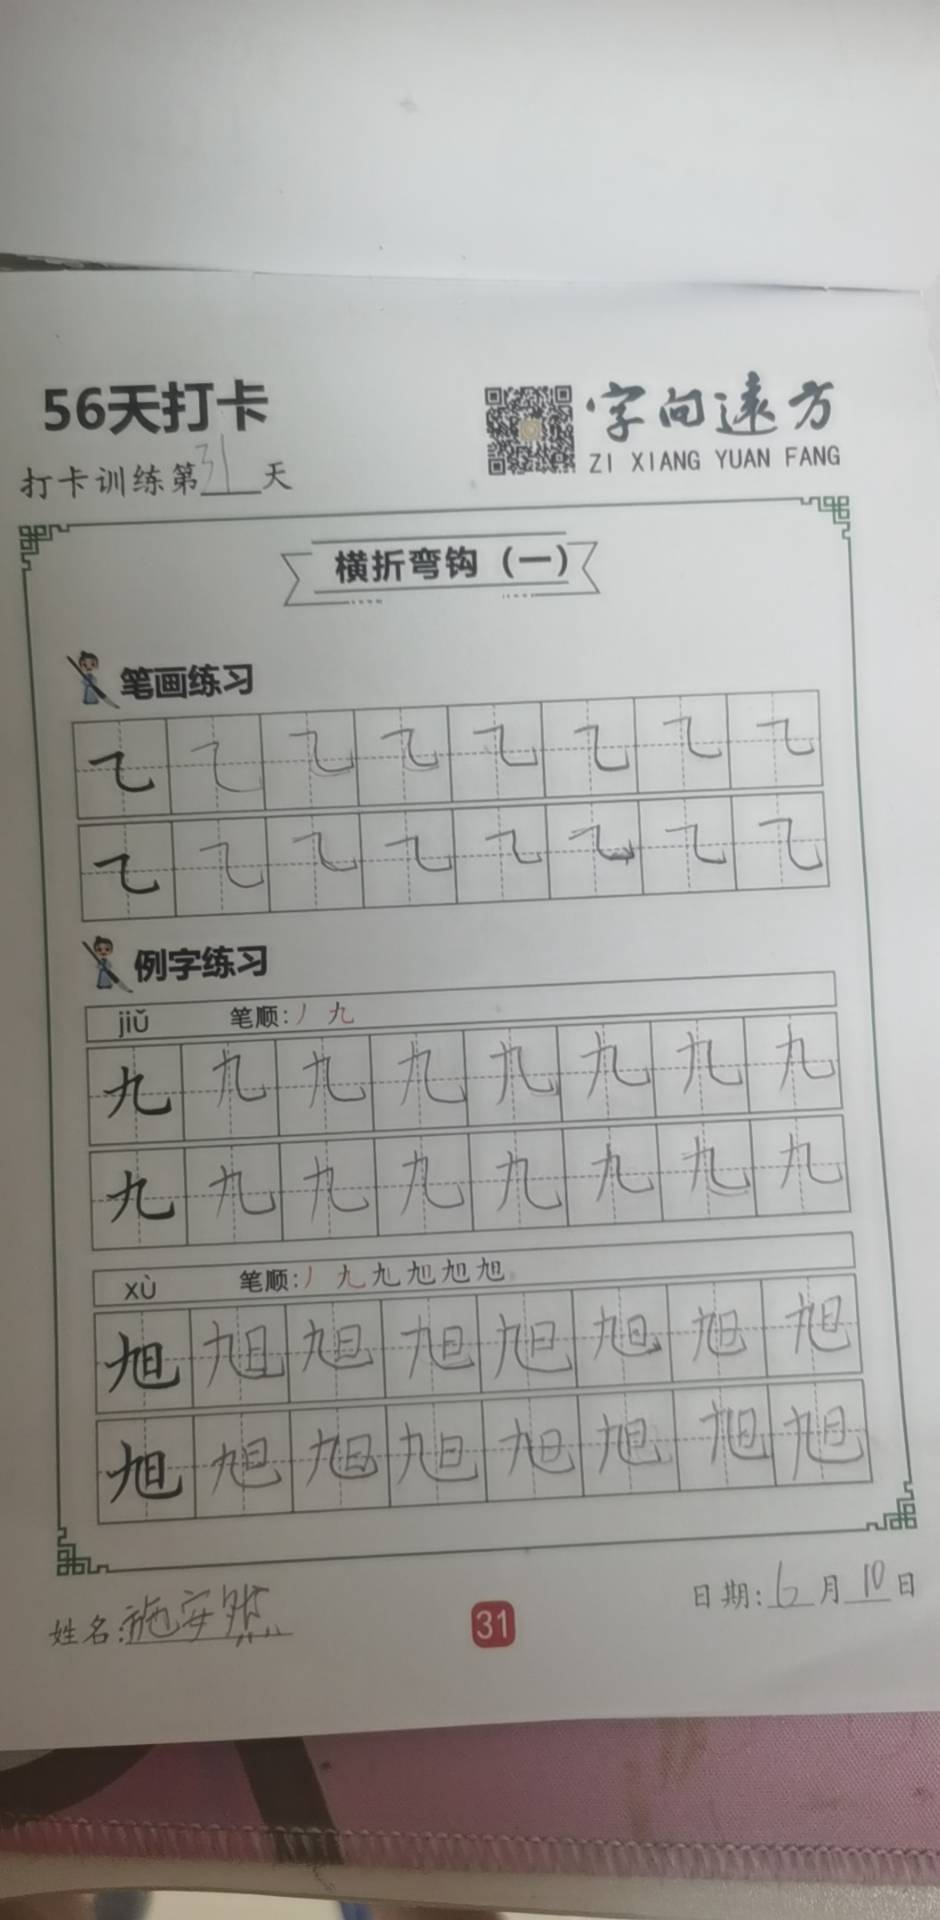 56天打卡
字向遠方
ZI XIANG YUAN FANG
打卡训练第31天
横折弯钩（一）
笔画练习
例字练习
jiǔ 笔顺:丿 九
九 九 九 九 九 九 九 九
九 九 九 九 九 九 九 九
xù 笔顺:丿 九 九 旭 旭 旭
旭 旭 旭 旭 旭 旭 旭 旭
旭 旭 旭 旭 旭 旭 旭 旭
姓名:施安然
31
日期:6月10日